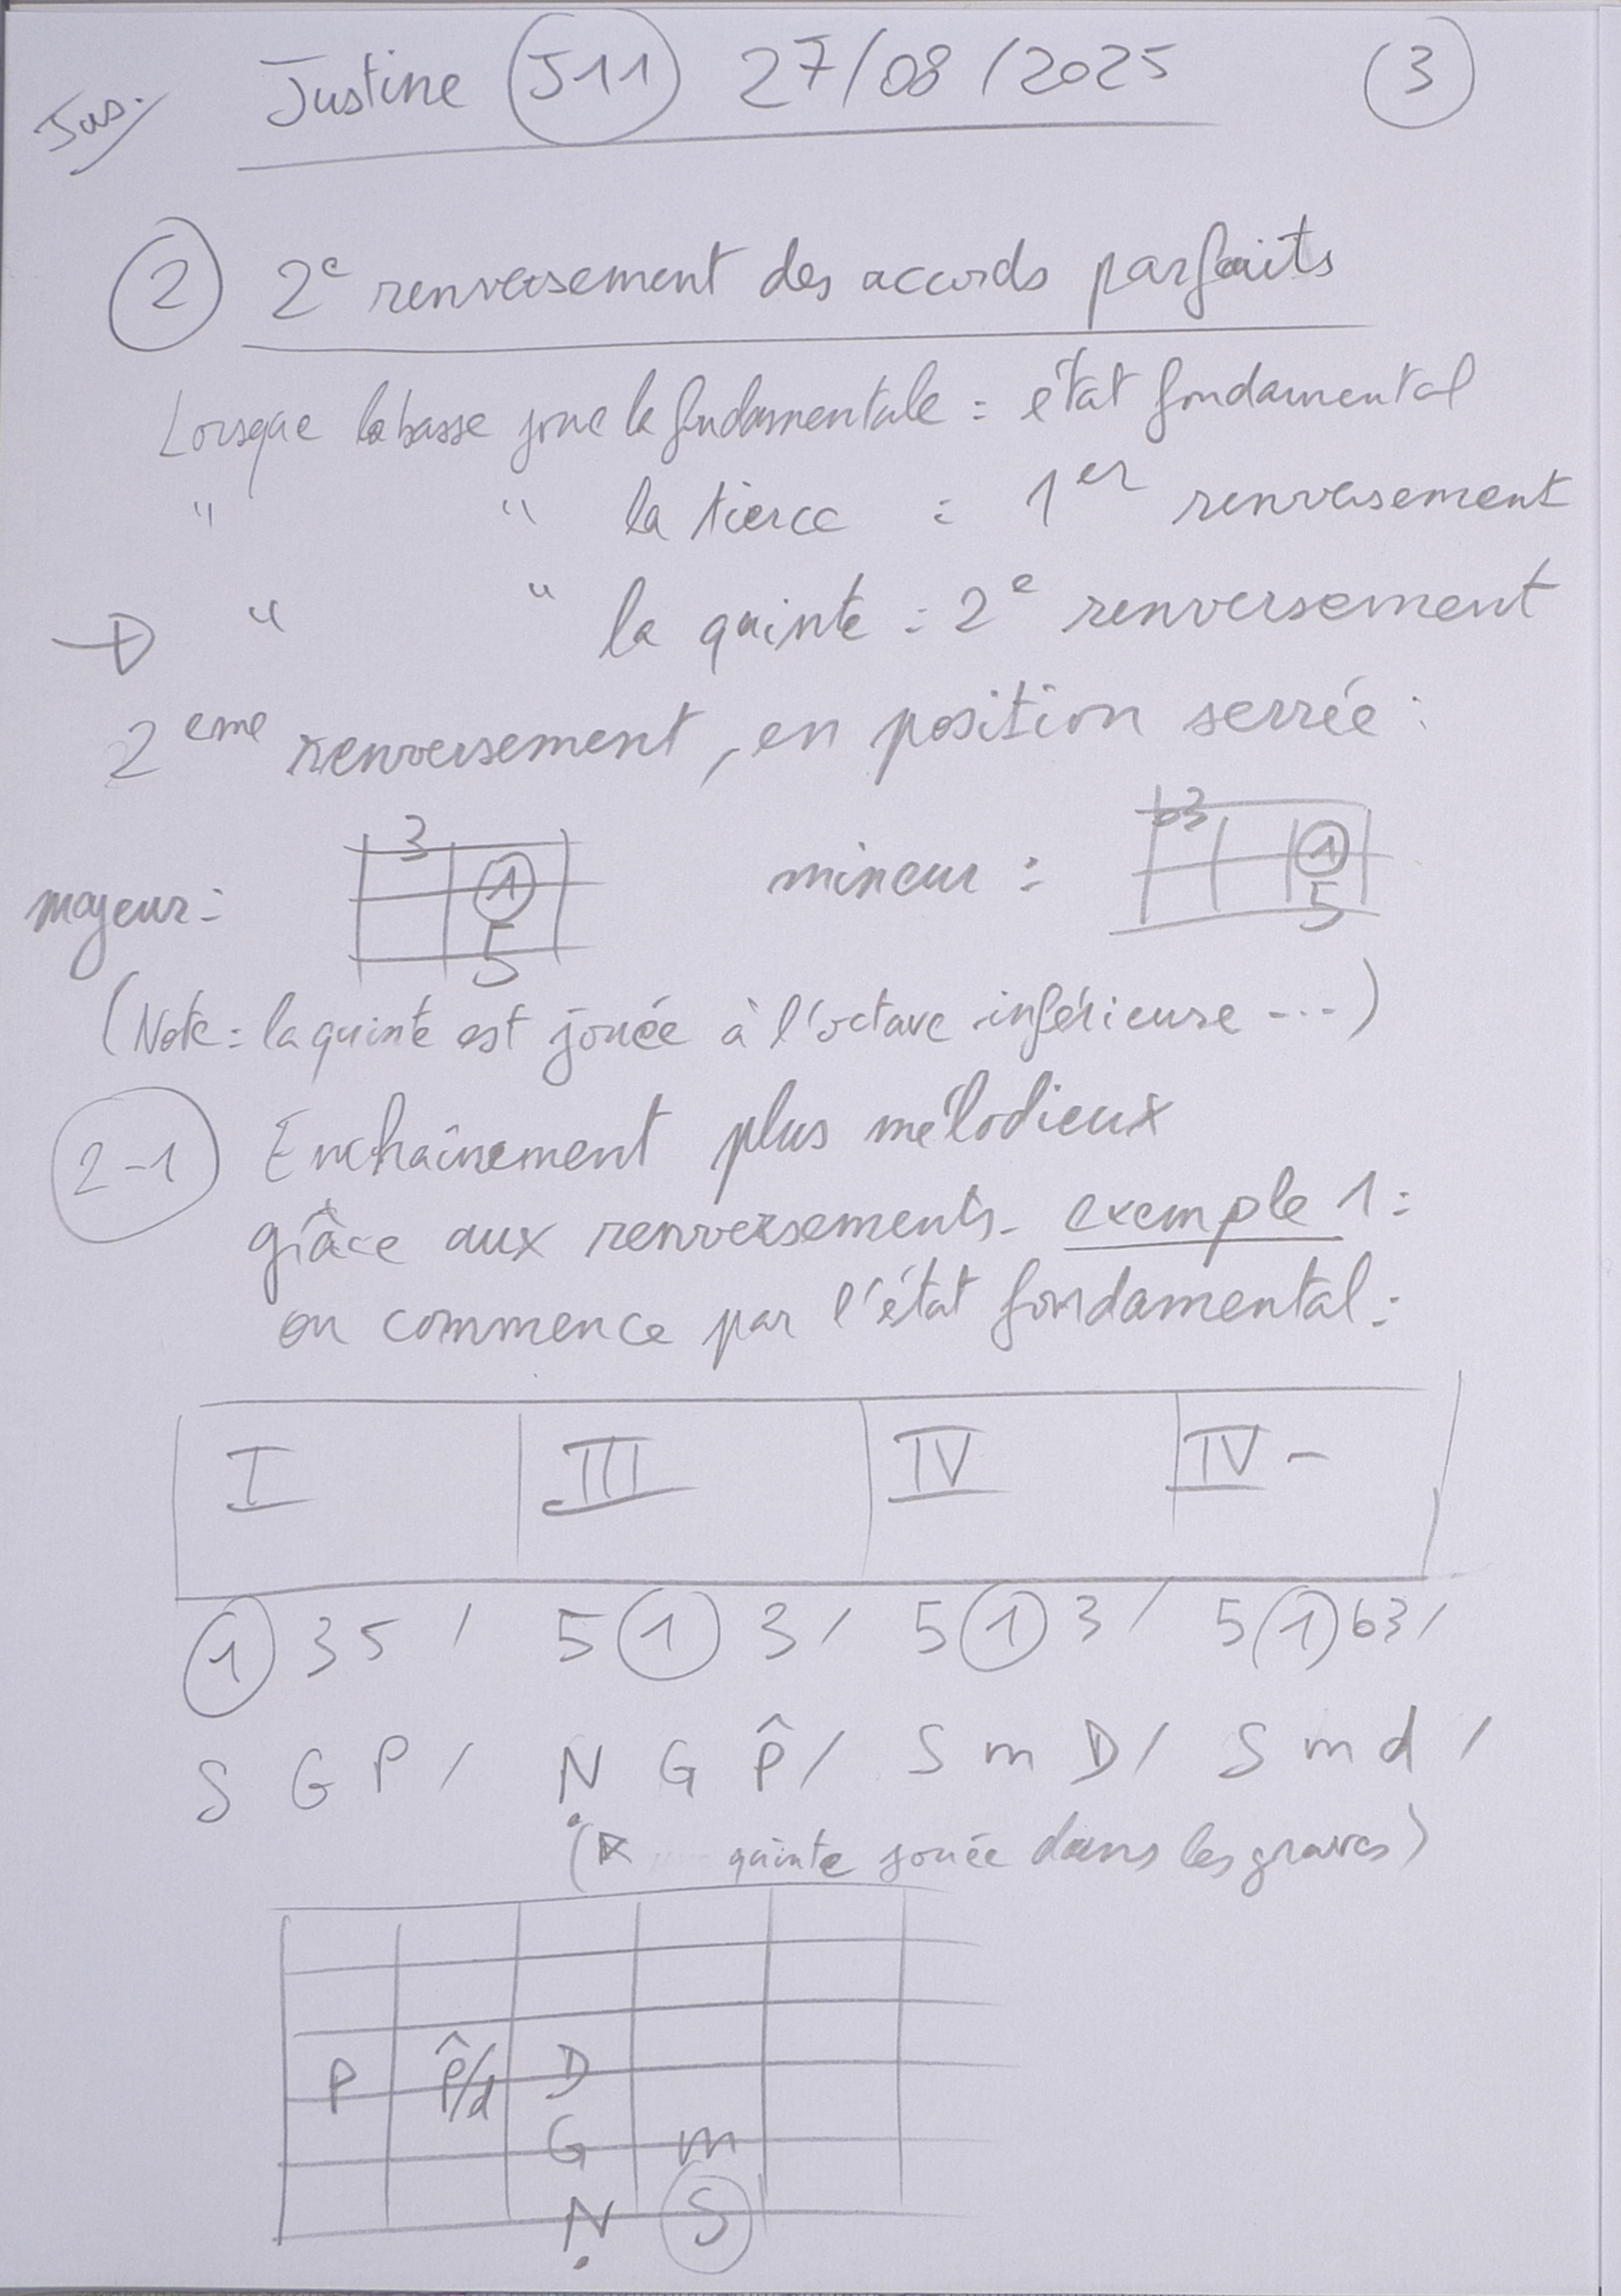 Jus. Justine J11 27/08/2025 3
2 2e renversement des accords parfaits
Lorsque la basse joue la fondamentale = état fondamental
" " la tierce : 1er renversement
" " la quinte : 2e renversement
2eme renversement, en position serrée :
3 b3
majeur : 1 mineur : 1
5 5
(Note : la quinte est jouée à l'octave inférieure ...)
2-1 Enchaînement plus mélodieux
grâce aux renversements. exemple 1 :
on commence par l'état fondamental :
I III IV IV -
1 3 5 / 5 1 3 / 5 1 3 / 5 1 b3 /
S G P / Ṇ G P̂ / S m D / S m d /
( quinte jouée dans les graves)
P P̂/d D
G m
Ṇ S